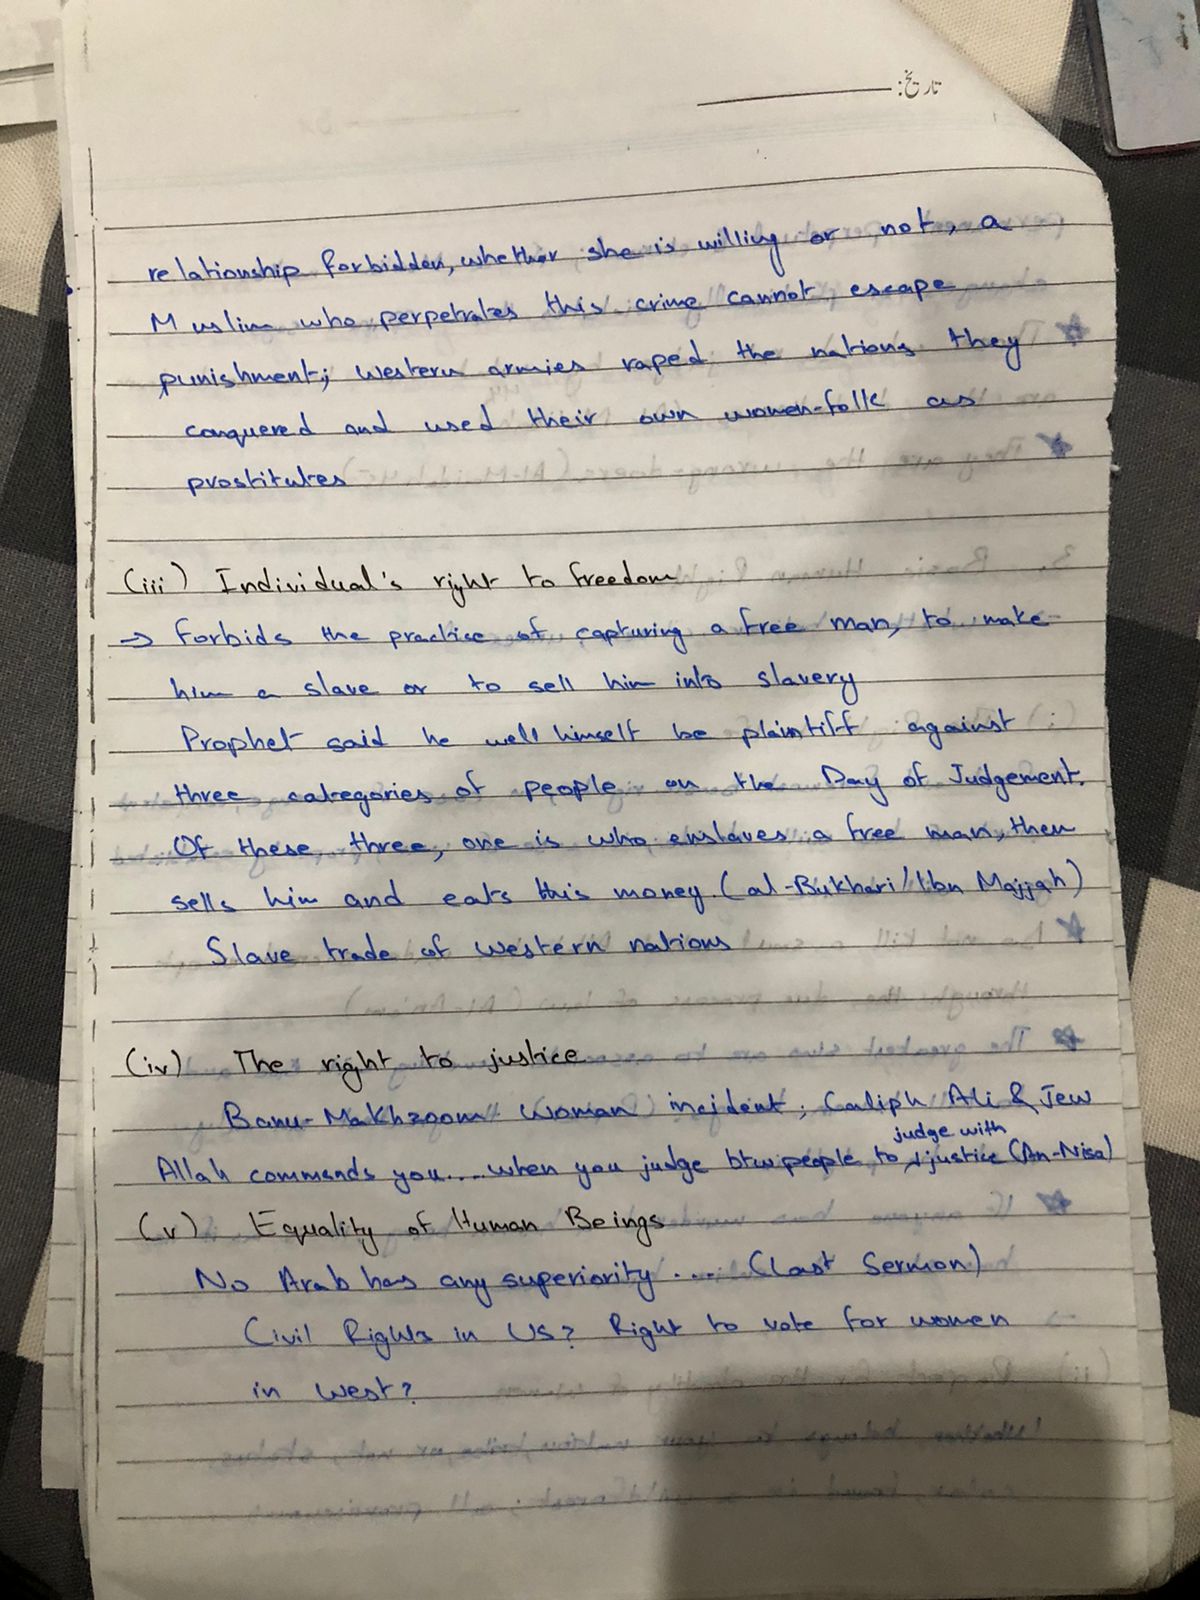 تاریخ:
relationship forbidden, whether she is willing or not, a
Muslim who perpetrates this crime cannot escape
punishment; western armies raped the nations they
conquered and used their own women-folk as
prostitutes
(iii) Individual's right to freedom
→ Forbids the practice of capturing a free man, to make
him a slave or to sell him into slavery
Prophet said he well himself be plaintiff against
three categories of people on the Day of Judgement.
Of these three, one is who enslaves a free man, then
sells him and eats this money. (al-Bukhari/Ibn Majjah)
Slave trade of western nations
(iv) The right to justice
Banu-Makhzoom woman incident; Caliph Ali & Jew
Allah commands you.... when you judge btw people to judge with justice (An-Nisa)
(v) Equality of Human Beings
No Arab has any superiority .... (Last Sermon)
Civil Rights in US? Right to vote for women
in West?